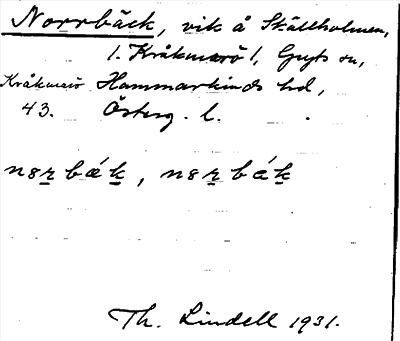 Norrbäck, vik å Skällholmen,
/. Kråkmarö /, Gryts sn,
Kråkmarö Hammarkinds hd,
43. Österg. l.
nɜr̲bǽk̲, nɜr̲bák̲
Th. Lindell 1931.